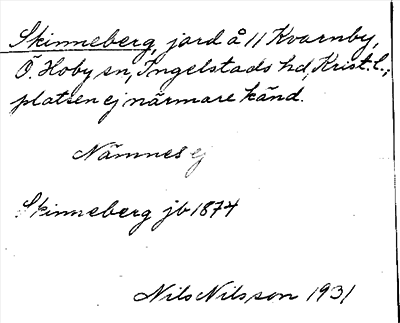 Skinneberg, jord å 11 Kvarnby,
Ö. Hoby sn, Ingelstads hd, Krist. l.;
platsen ej närmare känd.
Nämnes ej
Skinneberg jb 1874
Nils Nilsson 1931